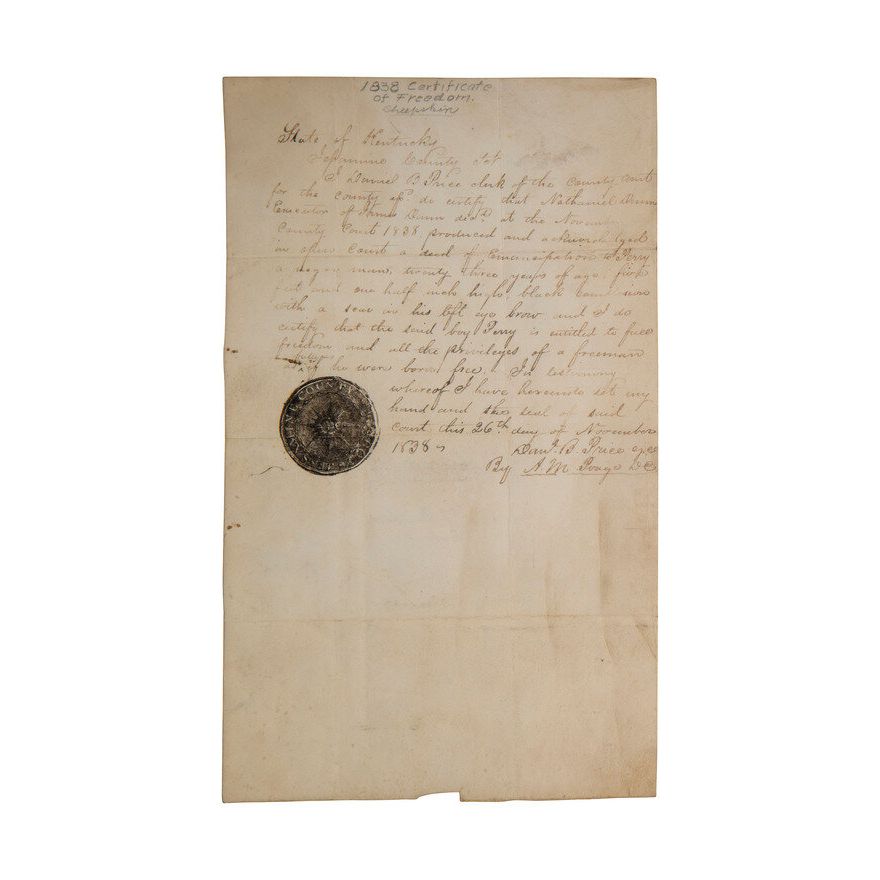 1838 Certificate
of Freedom.
Sheepskin
State of Kentucky
Jessamine County Sct
I Daniel B Price clerk of the County Court
for the county afd do certify that Nathaniel Dunn
Executor of James Dunn decd at the November
County Court 1838, produced and acknowledged
in open Court a deed of Emancipation to Perry
a negro man, twenty three years of age, five
feet and one half inch high, black
with a scar in his left eye brow and I do
certify that the said boy Perry is entitled to
freedom and all the privileges of a freeman
as if he were born free. In testimony
whereof I have hereunto set my
hand and the seal of said
Court this 26th day of November
1838
JESSAMINE COUNTY
Danl. B. Price
By A. M. D C